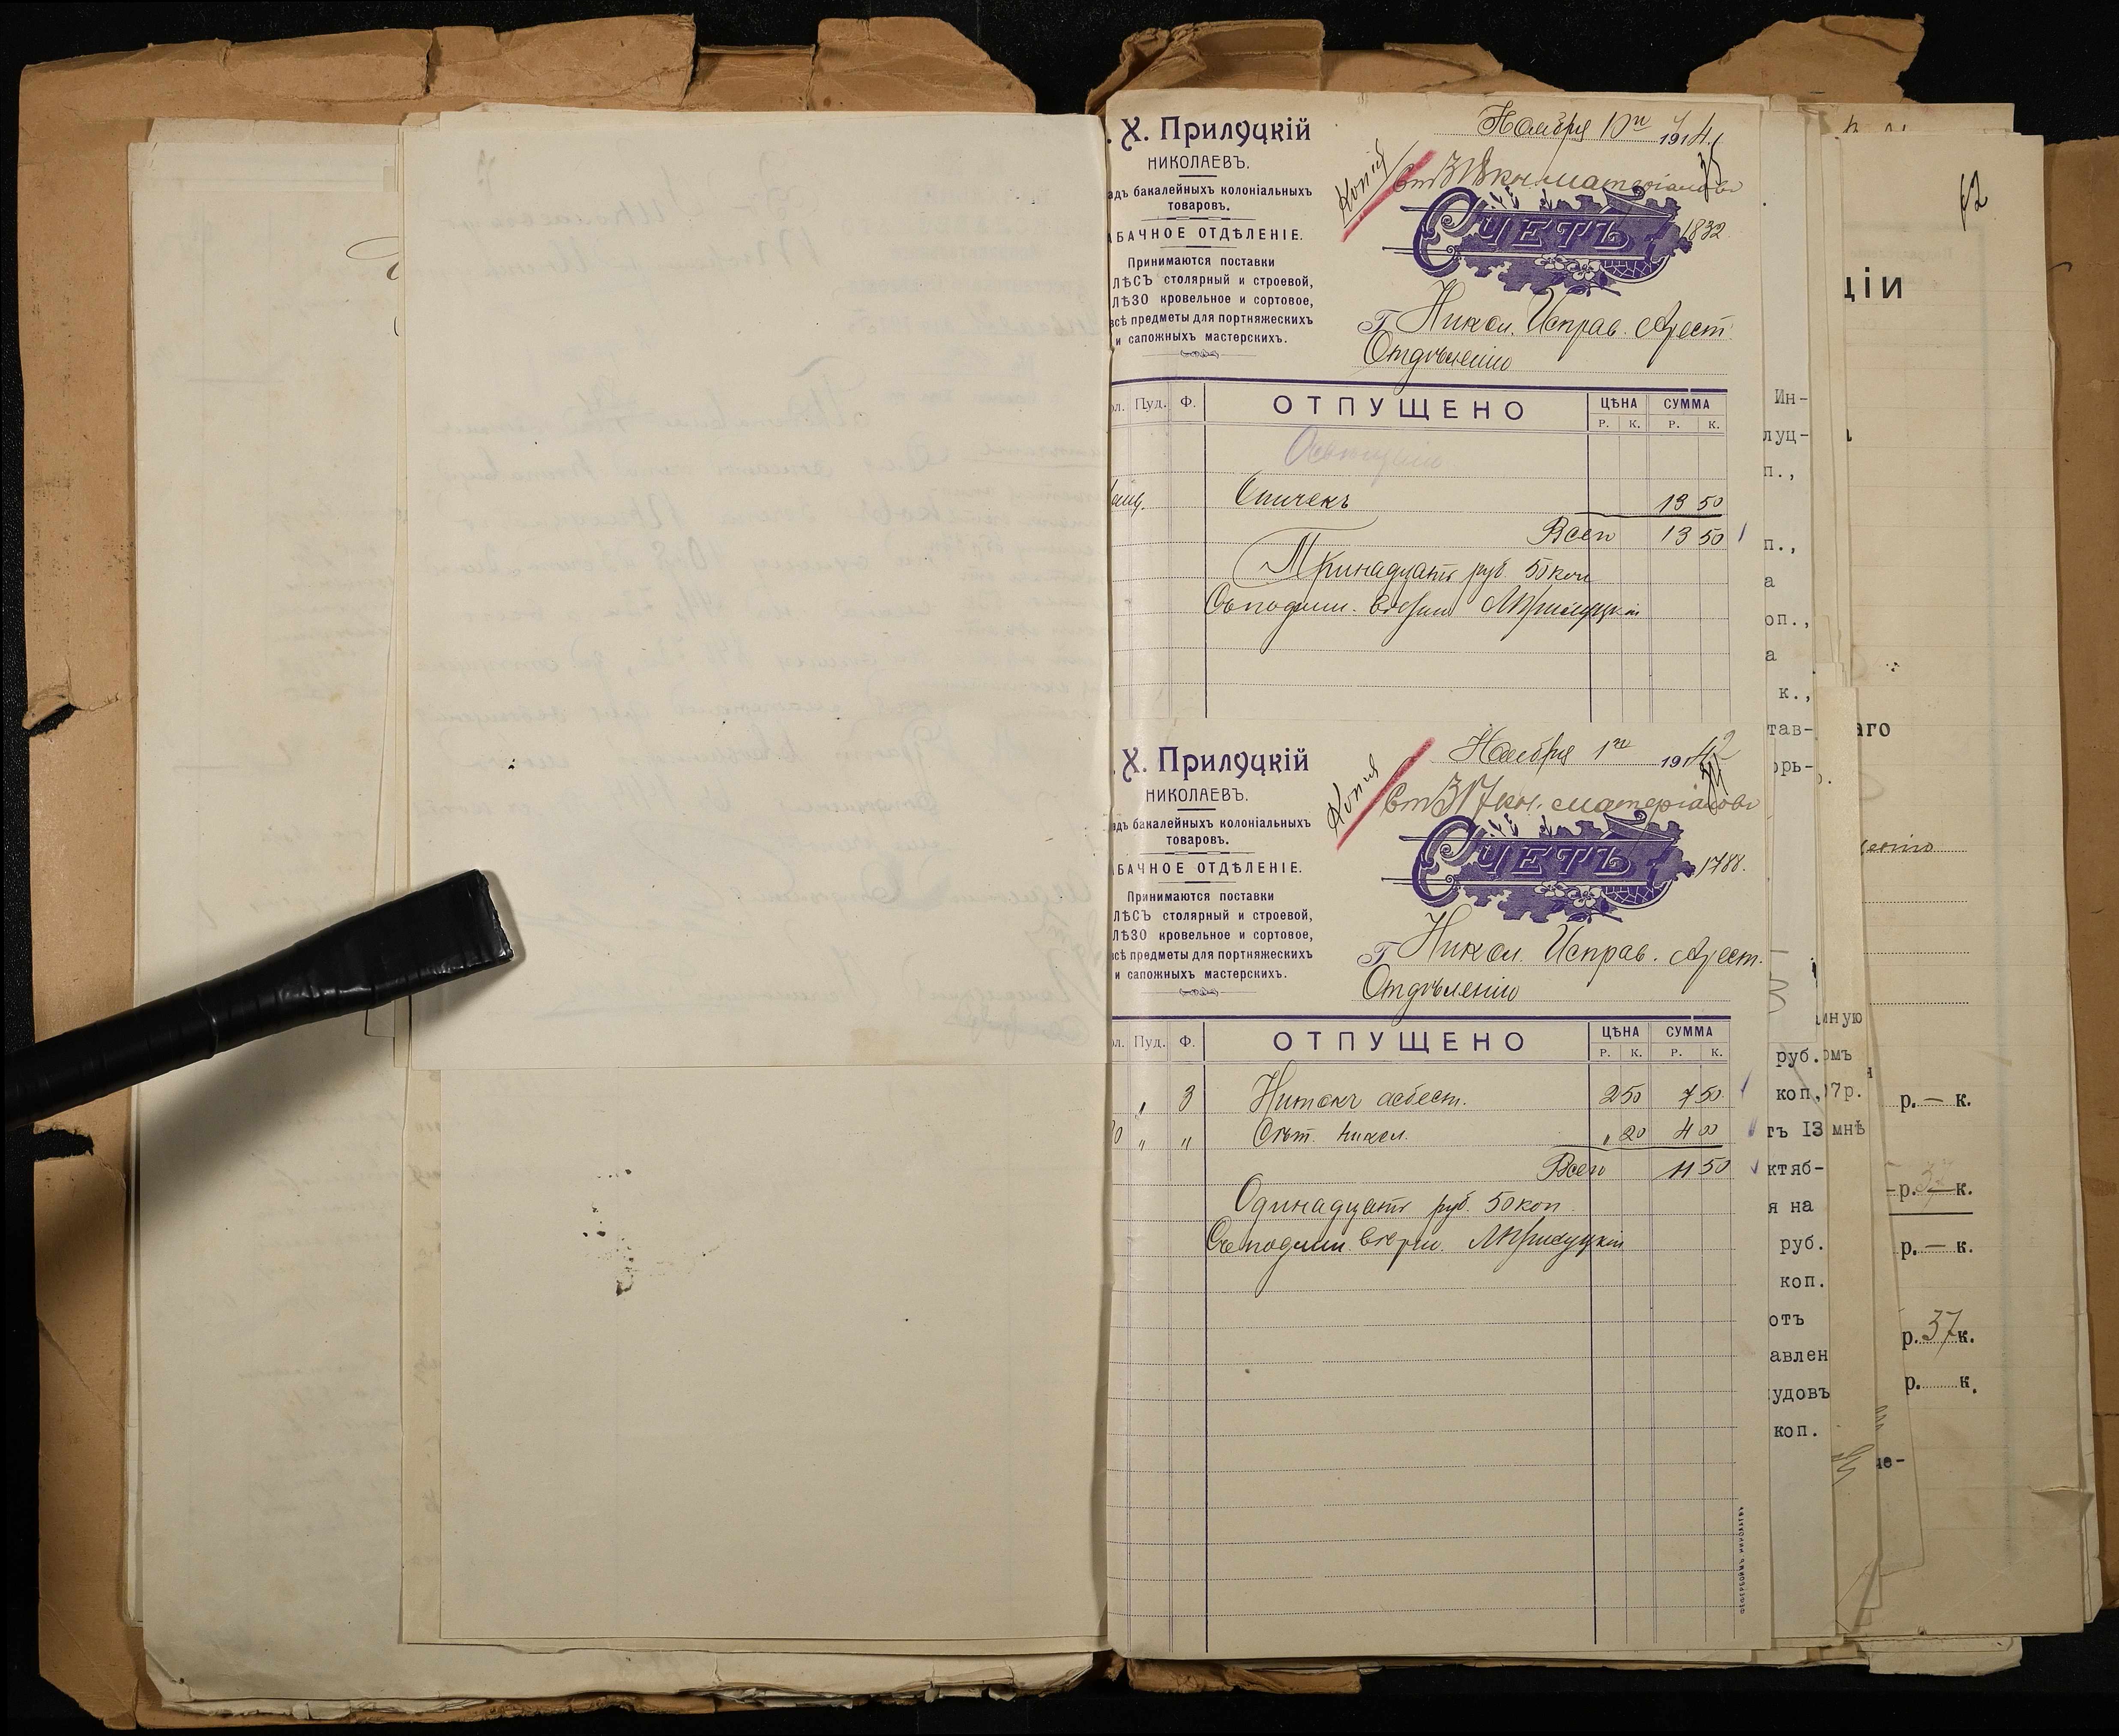 Х. Прилуцкій
НИКОЛАЕВЪ.
адъ бакалейныхъ колоніальныхъ
товаровъ.
АБАЧНОЕ ОТДѢЛЕНІЕ.
Принимаются поставки
ЛѢСЪ столярный и строевой,
ЛѢЗО кровельное и сортовое,
всѣ предметы для портняжескихъ
и сапожныхъ мастерскихъ.
Ноября 10го 1914 г.
Копія
35
Ст 318 кн. матеріаловъ
СЧЕТЪ
1832
Г Никол. Исправ. Арест.
Отдѣленію
ол. Пуд. Ф. ОТПУЩЕНО ЦѢНА СУММА
Р. К. Р. К.
Освѣщеніе
ящ. Спичекъ 13 50
Всего 13 50
Тринадцать руб 50 коп
Съ подлин. вѣрно Прилуцкій
Х. Прилуцкій
НИКОЛАЕВЪ.
адъ бакалейныхъ колоніальныхъ
товаровъ.
АБАЧНОЕ ОТДѢЛЕНІЕ.
Принимаются поставки
ЛѢСЪ столярный и строевой,
ЛѢЗО кровельное и сортовое,
всѣ предметы для портняжескихъ
и сапожныхъ мастерскихъ.
Ноября 1го 1914
Копія
Ст 317 кн. матеріаловъ
СЧЕТЪ
1788.
Г Никол. Исправ. Арест.
Отдѣленію
ол. Пуд. Ф. ОТПУЩЕНО ЦѢНА СУММА
Р. К. Р. К.
" 3 Нитокъ асбест. 2 50 7 50
0 " " Сѣт. никел. " 20 4 00
Всего 11 50
Одинадцать руб. 50 коп.
Съ подлин. вѣрно. Прилуцкій
Ин-
луц-
п.,
п.,
а
оп.,
а
к.,
тав-
орь-
руб.
коп.
тъ 13
ктяб-
я на
руб.
коп.
отъ
авлен
удовъ
коп.
нную
омъ
7р.
мнѣ
42
ціи
аго
р. — к.
р. — к.
р. — к.
р. 37 к.
р. к.
че-